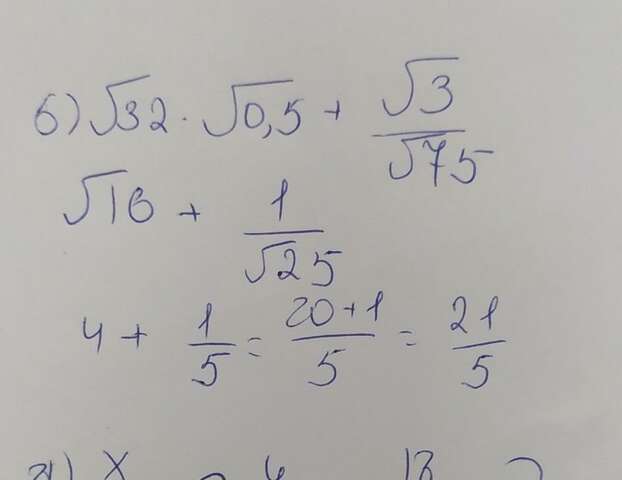 б) √32 · √0,5 + √3/√75
√16 + 1/√25
4 + 1/5 = 20+1/5 = 21/5